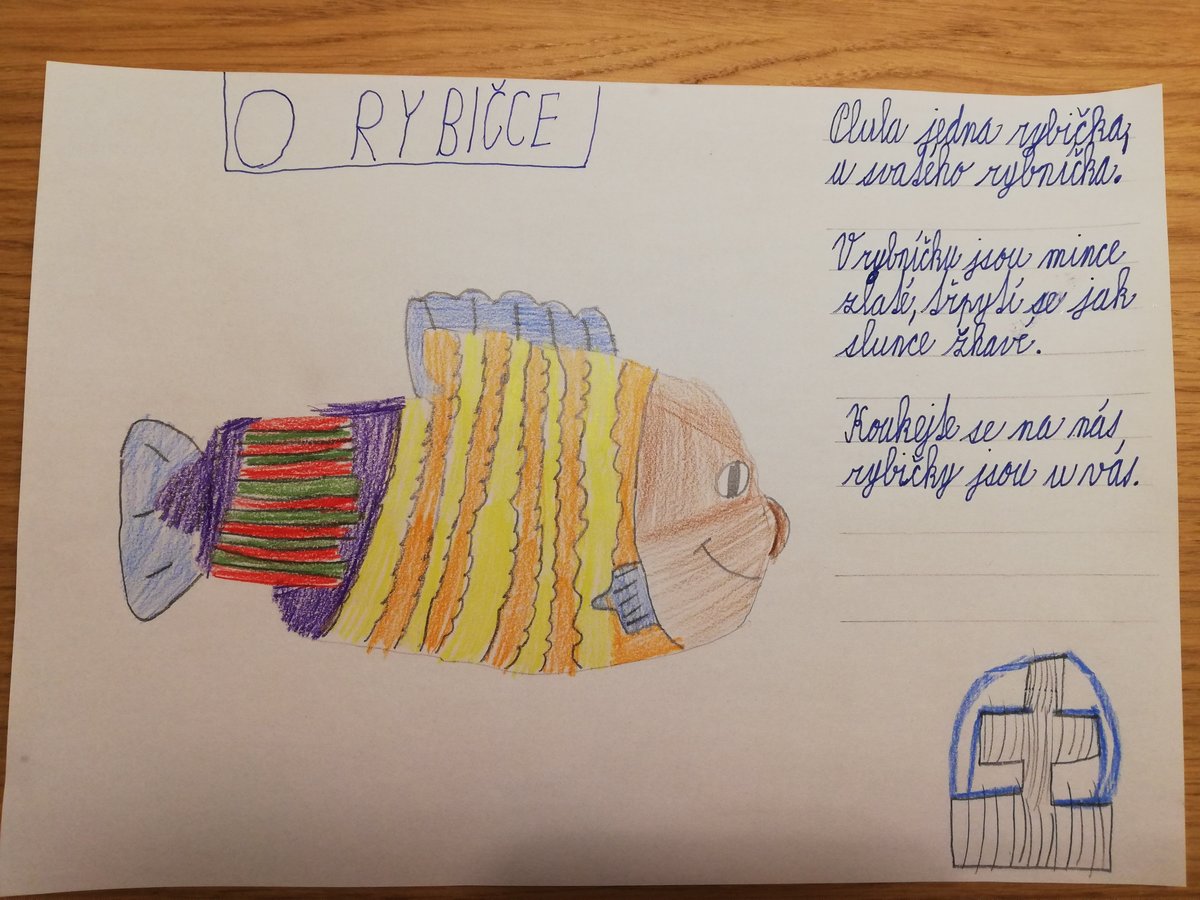 O RYBIČCE
Plula jedna rybička,
u svatého rybníčka.
V rybníčku jsou mince
zlaté, třpytí se jak
slunce žhavé.
Koukejte se na nás,
rybičky jsou u vás.